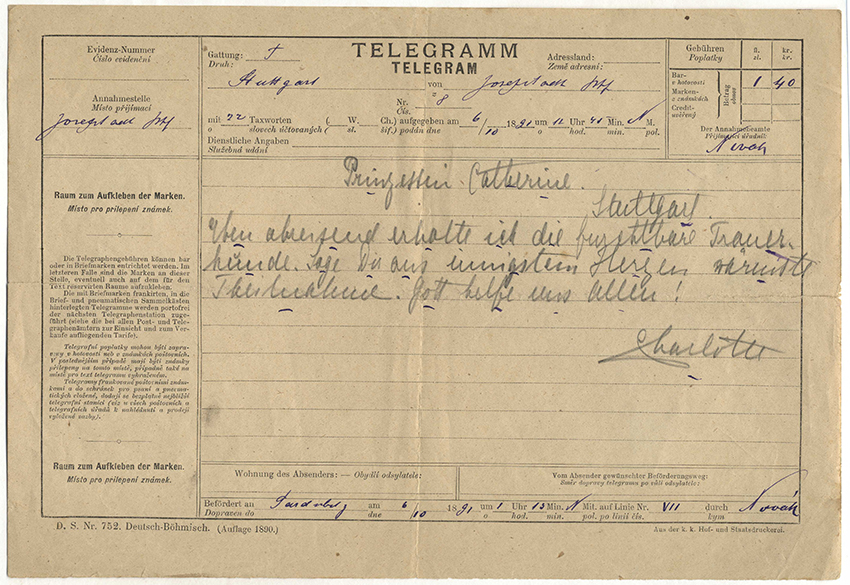 Evidenz-Nummer
Číslo evidenční
Annahmestelle
Místo přijímací
Josefstadt Bhf
Gattung: T
Druh:
TELEGRAMM
TELEGRAM
Adressland:
Země adresní:
Stuttgart von Josefstadt Bhf
z
Nr. 8
Čís.
mit 22 Taxworten ( W. Ch.) aufgegeben am 6 / 10 1891 um 11 Uhr 41 Min. N M.
o slovech účtovaných ( sl. šif.) podán dne o hod. min. pol.
Dienstliche Angaben
Služební udání
Gebühren fl. kr.
Poplatky zl. kr.
Bar- 1 40
v hotovosti
Marken-
v známkách
Credit-
úvěrný
Betrag
obnos
Der Annahmebeamte
Přijímající úředník
Novák
Raum zum Aufkleben der Marken.
Místo pro prilepení známek.
Die Telegraphengebühren können
bar oder in Briefmarken entrichtet werden. Im
letzteren Falle sind die Marken an dieser
Stelle, eventuell auch auf dem für den
Text reservirten Raume aufzukleben.
Die mit Briefmarken frankirten, in die
Brief- und pneumatischen Sammelkästen
hinterlegten Telegramme werden portofrei
der nächsten Telegraphenstation zuge-
führt (siehe die bei allen Post- und Tele-
graphenämtern zur Einsicht und zum Ver-
kaufe aufliegenden Tarife).
Telegrafní poplatky mohou býti zapra-
veny v hotovosti neb v známkách poštovních.
V poslednějším případě mají býti známky
přilepeny na tomto místě, případně také na
místě pro text telegramu vyhraženém.
Telegramy frankované poštovními znám-
kami a do schránek pro psaní a pneuma-
tických vložené, dodají se bezplatně nejbližší
telegrafní stanici (viz u všech poštovních a
telegrafních úřadů k nahlédnutí a prodeji
vyložené sazby).
Raum zum Aufkleben der Marken.
Místo pro prilepení známek.
Prinzessin Catherine
Stuttgart.
Eben abreisend erhalte ich die furchtbare Trauer-
kunde. Sage Dir aus innigstem Herzen wärmste
Theilnahme. Gott helfe uns Allen!
Charlotte
Wohnung des Absenders: — Obydlí odsylatele:
Vom Absender gewünschter Beförderungsweg:
Směr dopravy telegramu po vůli odsylatele:
Befördert an Pardubitz am 6 / 10 1891 um 1 Uhr 15 Min. N Mit. auf Linie Nr. VII durch Novák
Dopraven do dne o hod. min. pol. po linii čís. kým
D. S. Nr. 752. Deutsch-Böhmisch. (Auflage 1890.)
Aus der k. k. Hof- und Staatsdruckerei.